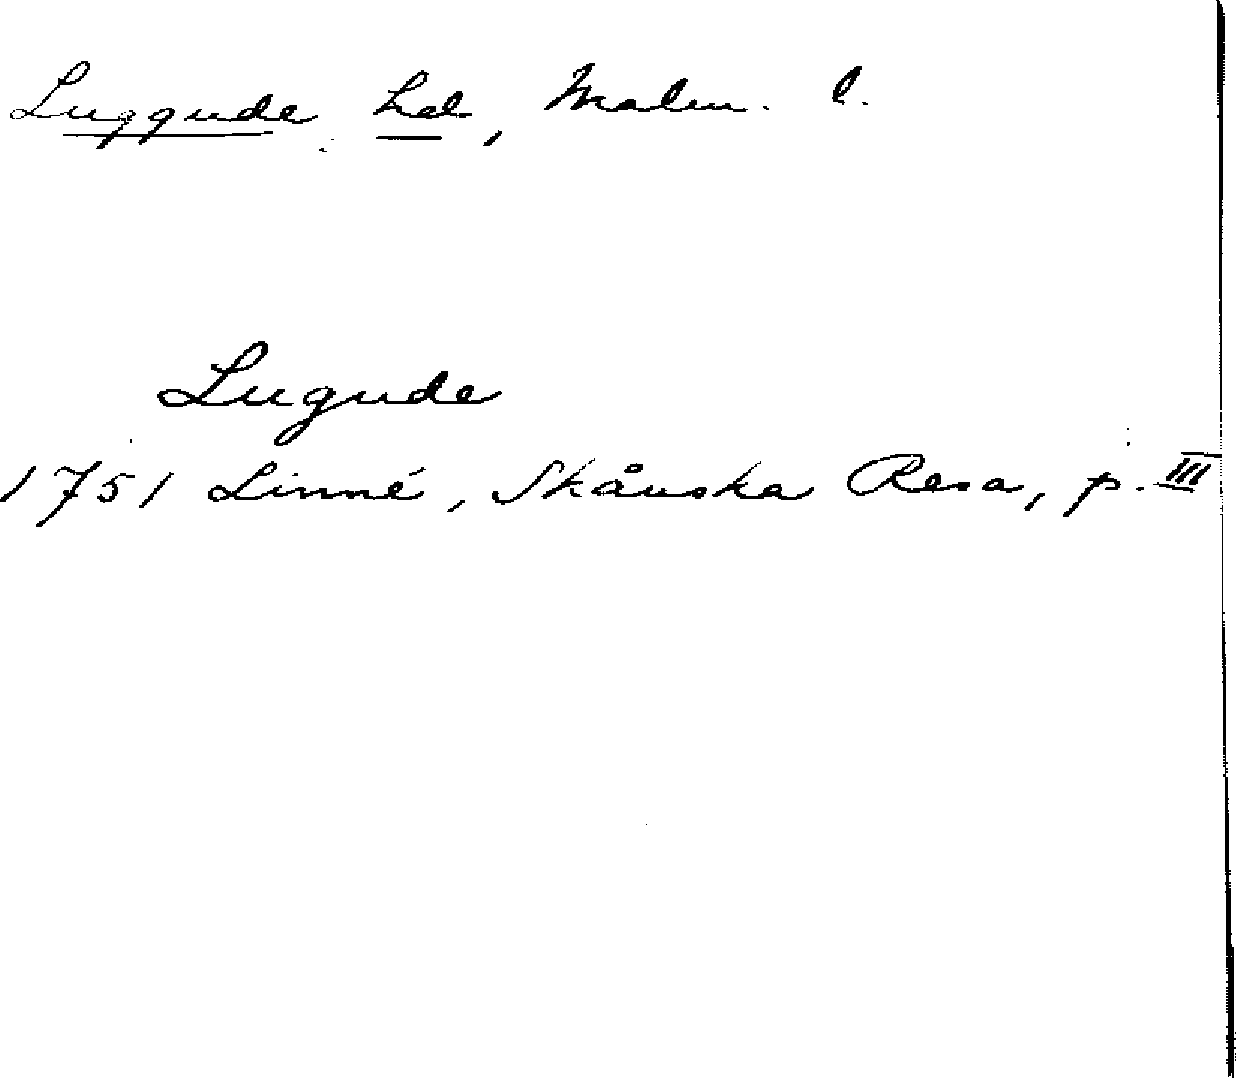 Luggude hd, Malm. l.
Lugude
1751 Linné, Skånska Resa, p. III